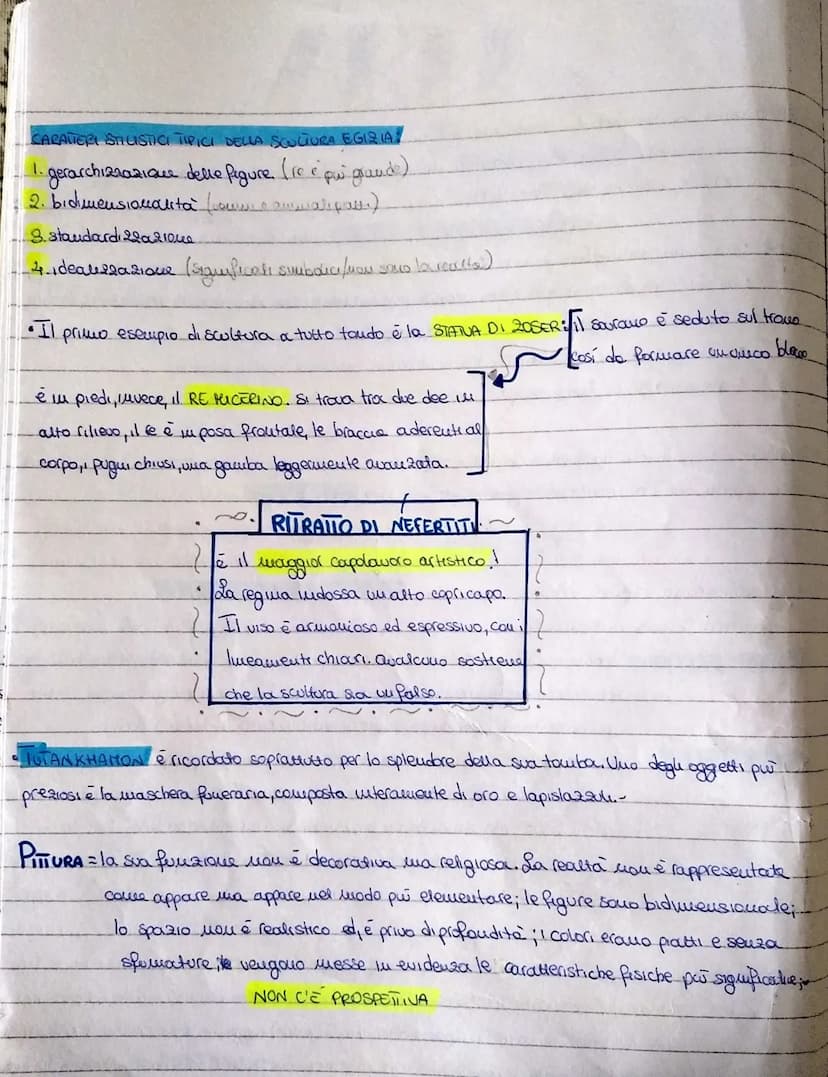 CARATTERI STILISTICI TIPICI DELLA SCULTURA EGIZIA:
1. gerarchizzazione delle figure (re è più grande)
2. bidimensionalità (uomini e animali piatti)
3. standardizzazione
4. idealizzazione (significati simbolici/non sono la realtà)
• Il primo esempio di scultura a tutto tondo è la STATUA DI ZOSER: il sovrano è seduto sul trono
così da formare un unico blocco
è in piedi, invece, il RE MICERINO. Si trova tra due dee in
alto rilievo, il re è in posa frontale, le braccia aderenti al
corpo, i pugni chiusi, una gamba leggermente avanzata.
RITRATTO DI NEFERTITI
è il maggior capolavoro artistico!
La regina indossa un alto copricapo.
Il viso è armonioso ed espressivo, con i
lineamenti chiari. Qualcuno sostiene
che la scultura sia un falso.
• TUTANKHAMON è ricordato soprattutto per lo splendore della sua tomba. Uno degli oggetti più
preziosi è la maschera funeraria, composta interamente di oro e lapislazzuli.-
PITTURA = la sua funzione non è decorativa ma religiosa. La realtà non è rappresentata
come appare ma appare nel modo più elementare; le figure sono bidimensionale;
lo spazio non è realistico ed è privo di profondità; i colori erano piatti e senza
sfumature; vengono messe in evidenza le caratteristiche fisiche più significative;
NON C'È PROSPETTIVA